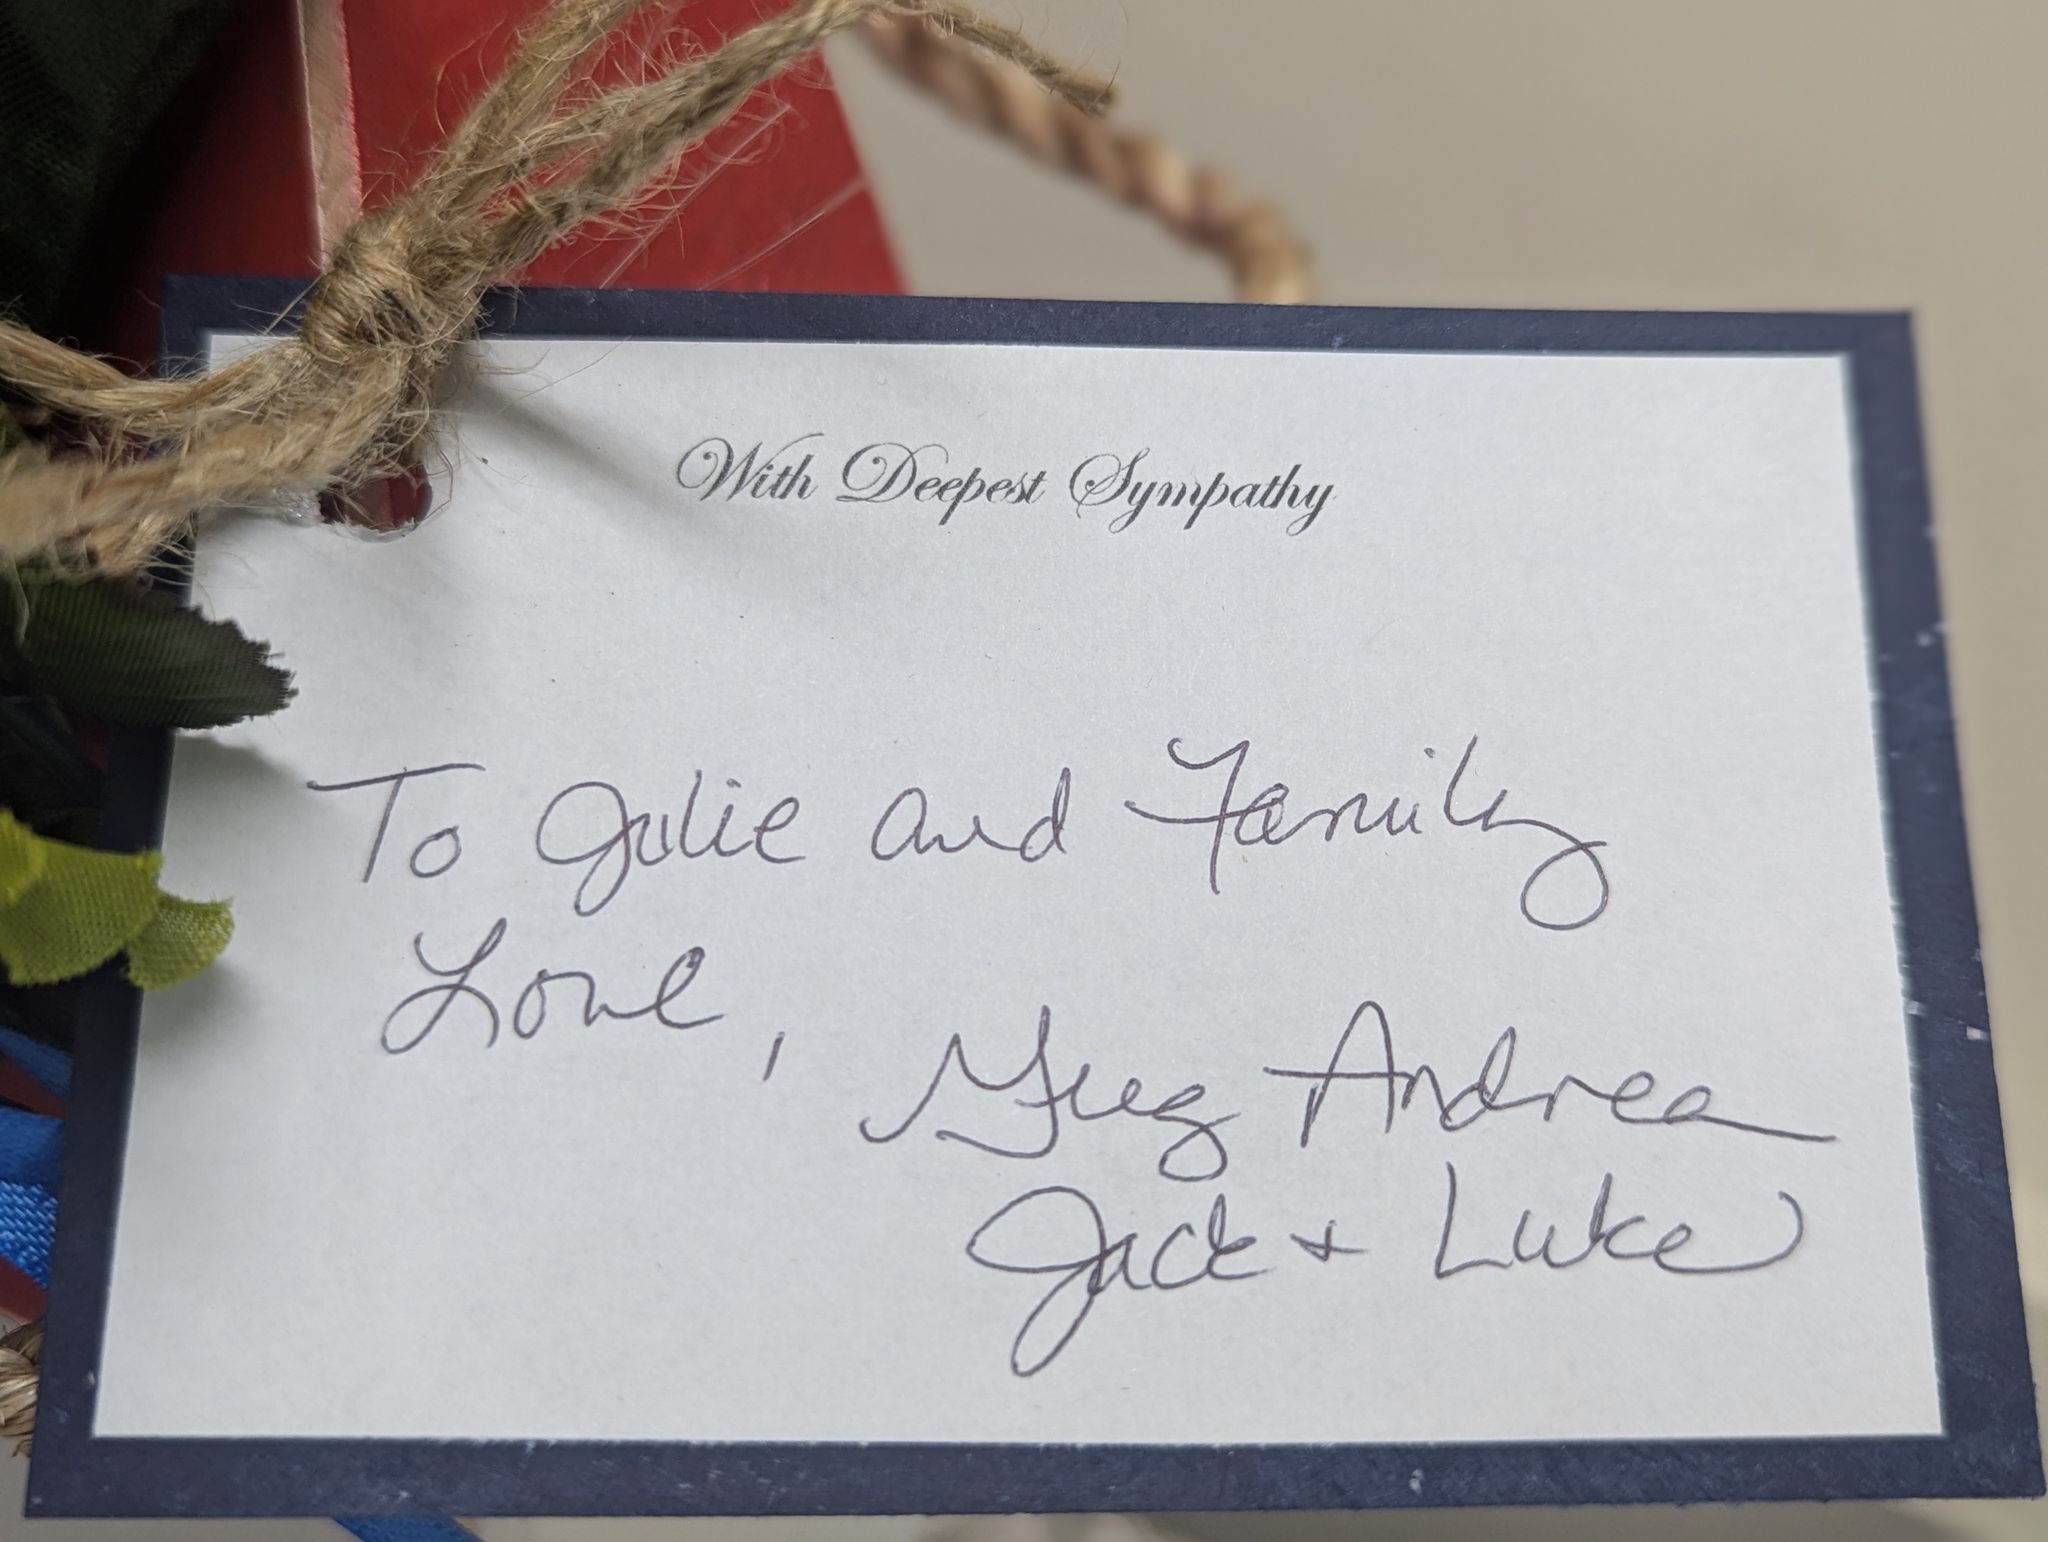 With Deepest Sympathy
To Julie and Family
Love,
Greg Andrea
Jack + Luke